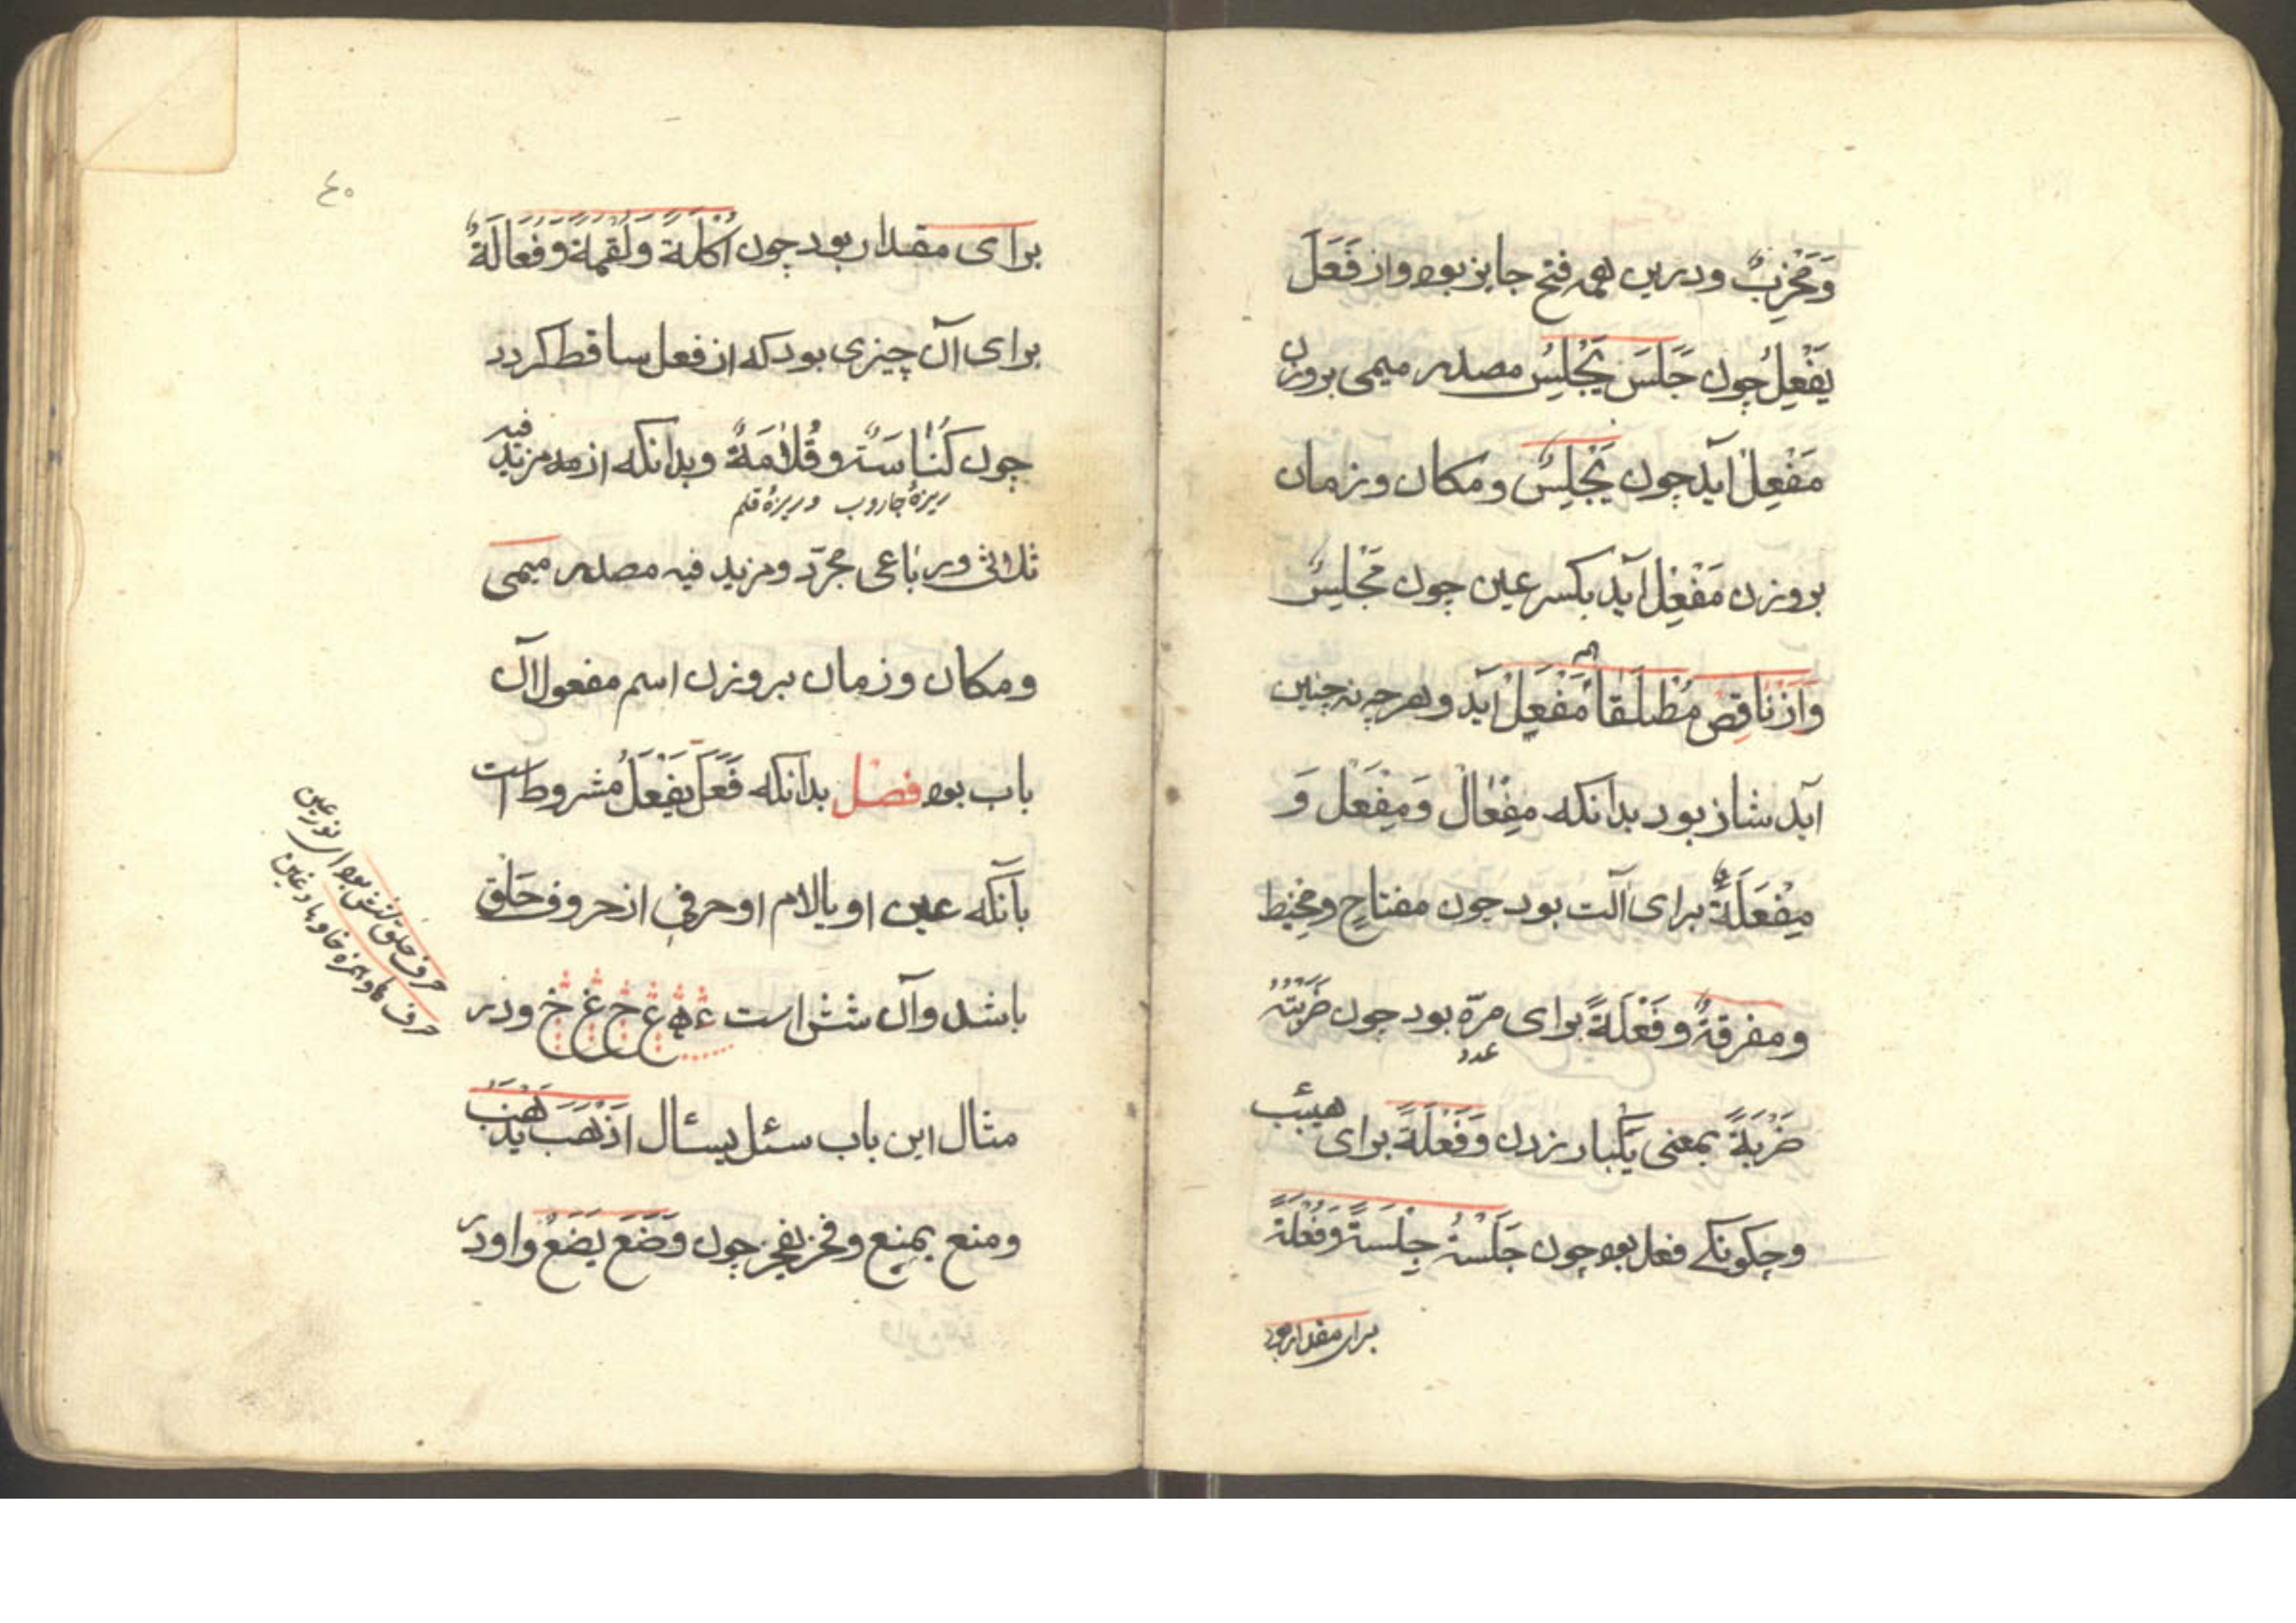 وَمَخْزِنٌ ودرین همه فتح جایز بود واز فَعَلَ
یَفْعِلُ چون جَلَسَ یَجْلِسُ مصدر میمی بروزن
مَفْعِلْ آید چون یَجْلِسٌ ومکان وزمان
بروزن مَفْعِلْ آید بکسر عین چون مَجْلِسٌ
وَازْ نَاقِصْ مُطْلَقاً مَفْعَلْ آید وهرچه نه چنین
آید شاذ بود بدانکه مِفْعَالْ وَمِفْعَلْ وَ
مِفْعَلَةٌ برای آلت بود چون مفتاح ومِخْیَط
ومفرقةٌ وفَعْلَةً برای مرّه بود چون ضَرَبْتُهُ
عدد
ضَرْبَةً بمعنی یکبار زدن وَفَعْلَةً برای هیئت
وچکونکی فعل بود چون جَلَسْتُ جِلْسَةً وَفُعْلَةً
برای مقدار بود
٤٠
برای مقدار بود چون اُکْلَةً وَلُقْمَةً وَفُعَالَةٌ
برای آن چیزی بود که از فعل ساقط کردد
چون کُنَاسَةٌ وقُلَامَةٌ وبدانکه از مزید فیه
ریزهٔ جاروب وریزهٔ قلم
ثلاثی ورباعی مجرّد ومزید فیه مصدر میمی
ومکان وزمان بروزن اسم مفعول آن
باب بود فصل بدانکه فَعَلَ یَفْعَلُ مشروط است
بآنکه عین او یا لام او حرفی از حروف حَلْق
باشد وآن شش است ء ه ع ح غ خ ودر
مثال این باب سئل یسئال اذْهَبَ یَذْهَبُ
ومنع یمنع وفخر یفخر چون وَضَعَ یَضَعُ واو در
حرف حلق شش بود ای نور عین
حرف ها وهمزه خا وحا وعین غین